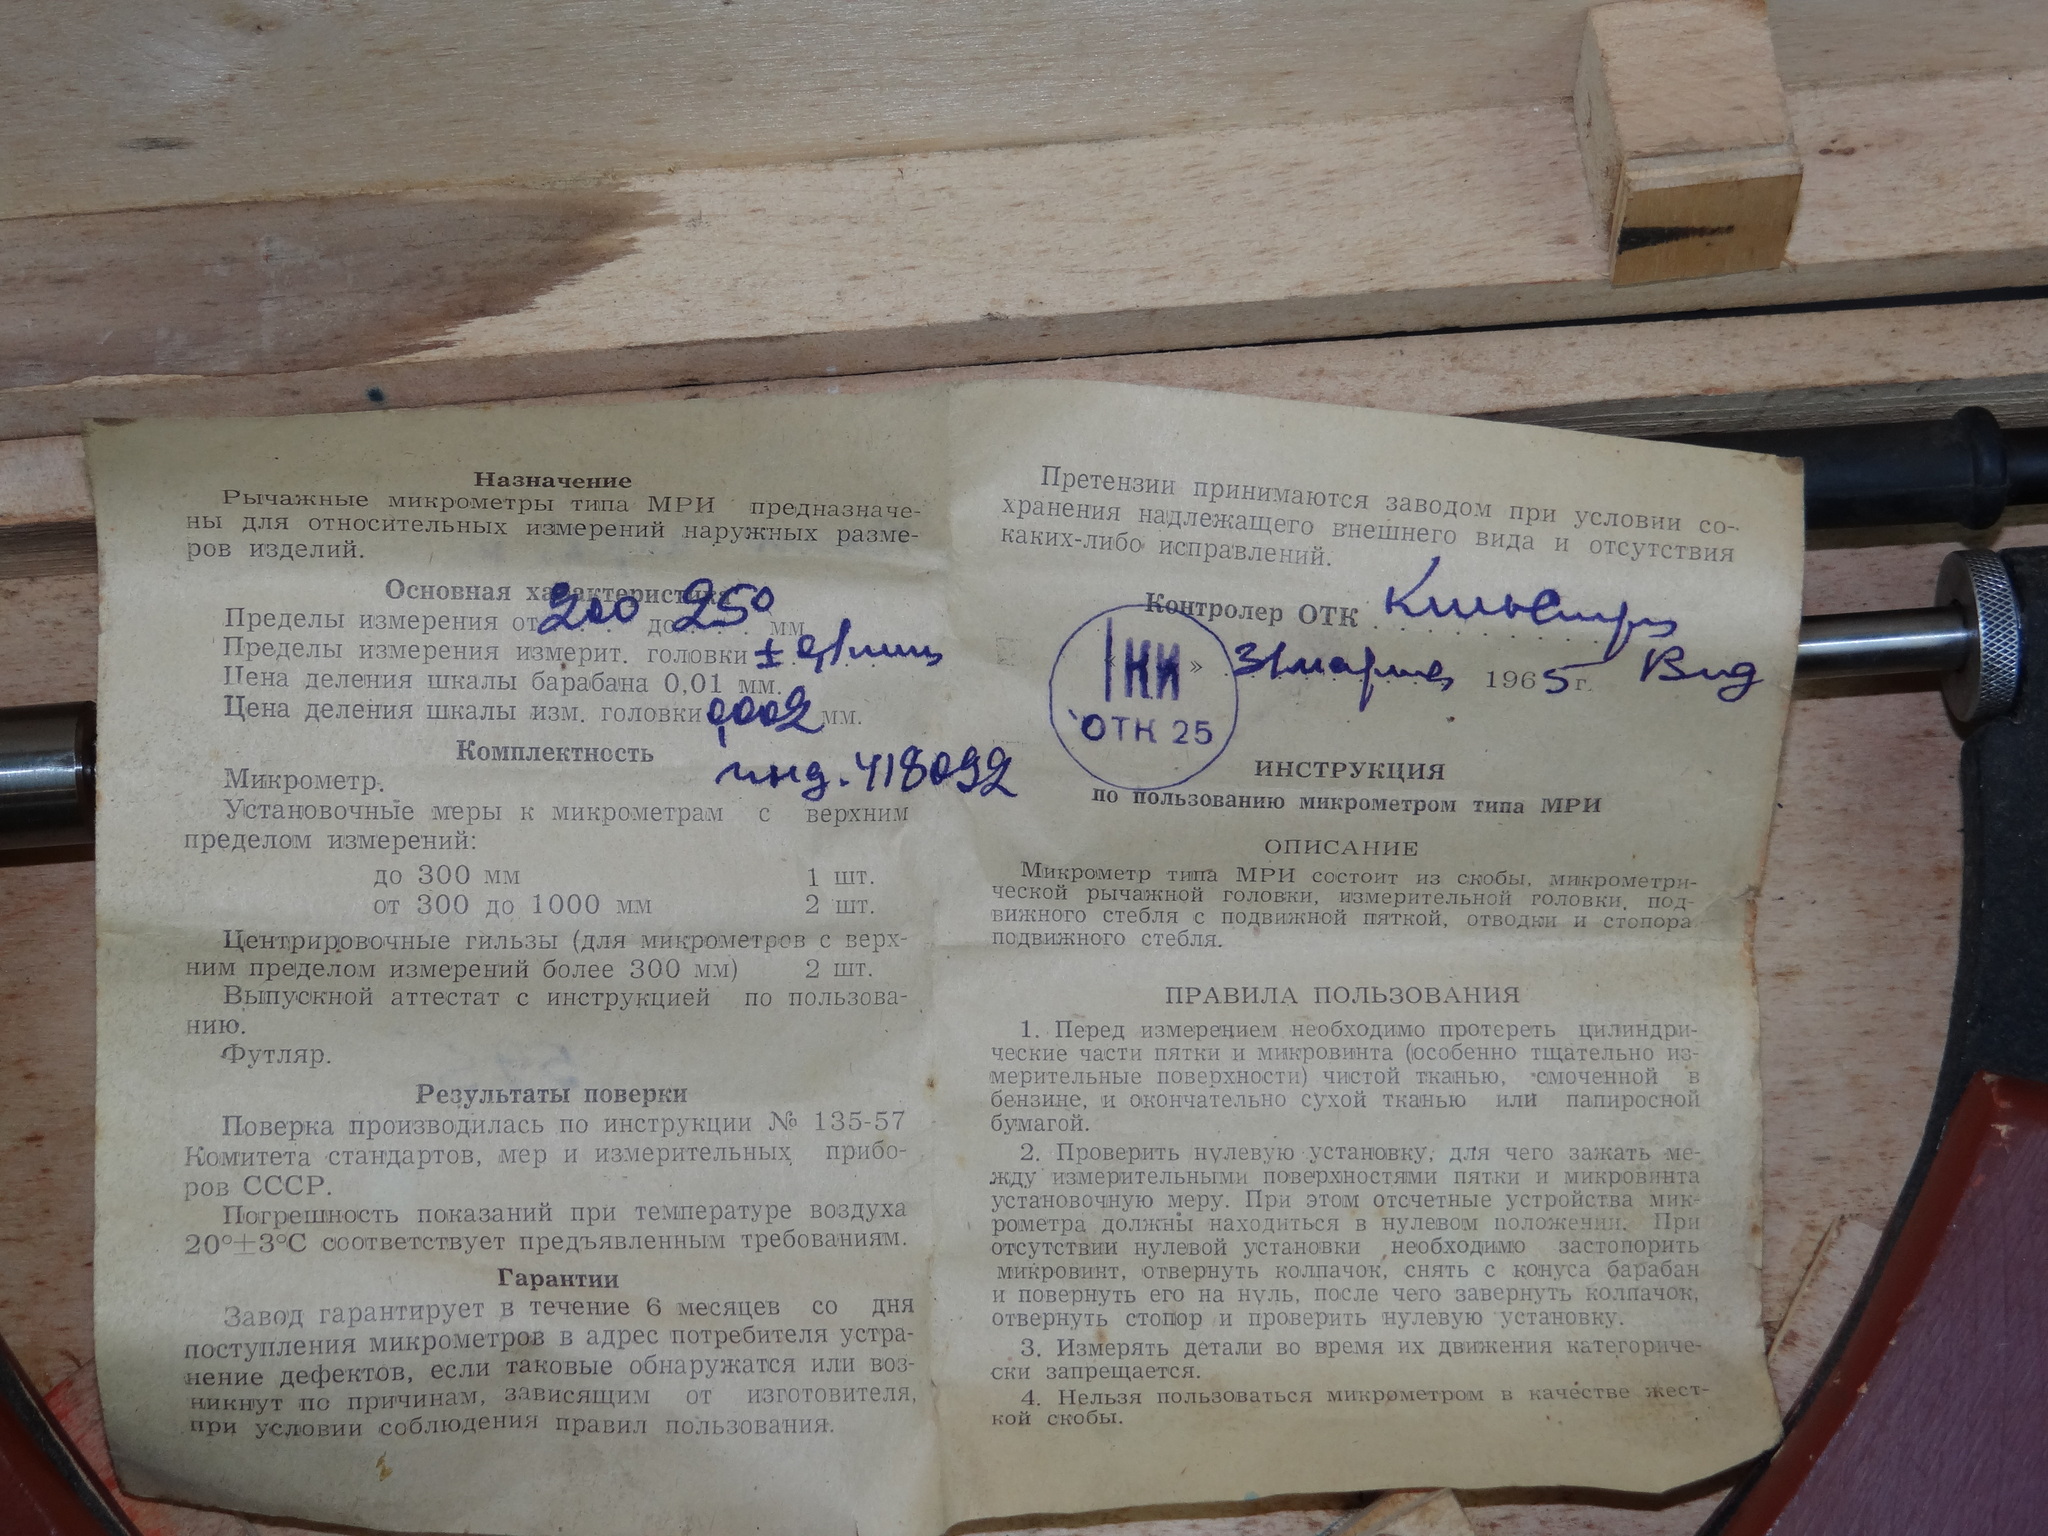 Назначение
Рычажные микрометры типа МРИ предназначе-
ны для относительных измерений наружных разме-
ров изделий.
Основная характеристика
Пределы измерения от 200 до 250 мм
Пределы измерения измерит. головки ± 0,1 мм
Цена деления шкалы барабана 0,01 мм.
Цена деления шкалы изм. головки 0,002 мм.
Комплектность
инд. 418092
Микрометр.
Установочные меры к микрометрам с верхним
пределом измерений:
до 300 мм 1 шт.
от 300 до 1000 мм 2 шт.
Центрировочные гильзы (для микрометров с верх-
ним пределом измерений более 300 мм) 2 шт.
Выпускной аттестат с инструкцией по пользова-
нию.
Футляр.
Результаты поверки
Поверка производилась по инструкции № 135-57
Комитета стандартов, мер и измерительных прибо-
ров СССР.
Погрешность показаний при температуре воздуха
20°±3°С соответствует предъявленным требованиям.
Гарантии
Завод гарантирует в течение 6 месяцев со дня
поступления микрометров в адрес потребителя устра-
нение дефектов, если таковые обнаружатся или воз-
никнут по причинам, зависящим от изготовителя,
при условии соблюдения правил пользования.
Претензии принимаются заводом при условии со-
хранения надлежащего внешнего вида и отсутствия
каких-либо исправлений.
Контролер ОТК
« » 31 марта 1965 г.
ОТК 25
ИНСТРУКЦИЯ
по пользованию микрометром типа МРИ
ОПИСАНИЕ
Микрометр типа МРИ состоит из скобы, микрометри-
ческой рычажной головки, измерительной головки, под-
вижного стебля с подвижной пяткой, отводки и стопора
подвижного стебля.
ПРАВИЛА ПОЛЬЗОВАНИЯ
1. Перед измерением необходимо протереть цилиндри-
ческие части пятки и микровинта (особенно тщательно из-
мерительные поверхности) чистой тканью, смоченной в
бензине, и окончательно сухой тканью или папиросной
бумагой.
2. Проверить нулевую установку, для чего зажать ме-
жду измерительными поверхностями пятки и микровинта
установочную меру. При этом отсчетные устройства мик-
рометра должны находиться в нулевом положении. При
отсутствии нулевой установки необходимо застопорить
микровинт, отвернуть колпачок, снять с конуса барабан
и повернуть его на нуль, после чего завернуть колпачок,
отвернуть стопор и проверить нулевую установку.
3. Измерять детали во время их движения категориче-
ски запрещается.
4. Нельзя пользоваться микрометром в качестве жест-
кой скобы.